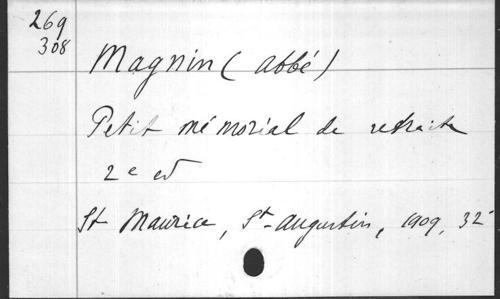 269
308
Magnin (abbé)
Petit mémorial de retraite
2e ed
St Maurice, St-Augustin, 1909, 32-